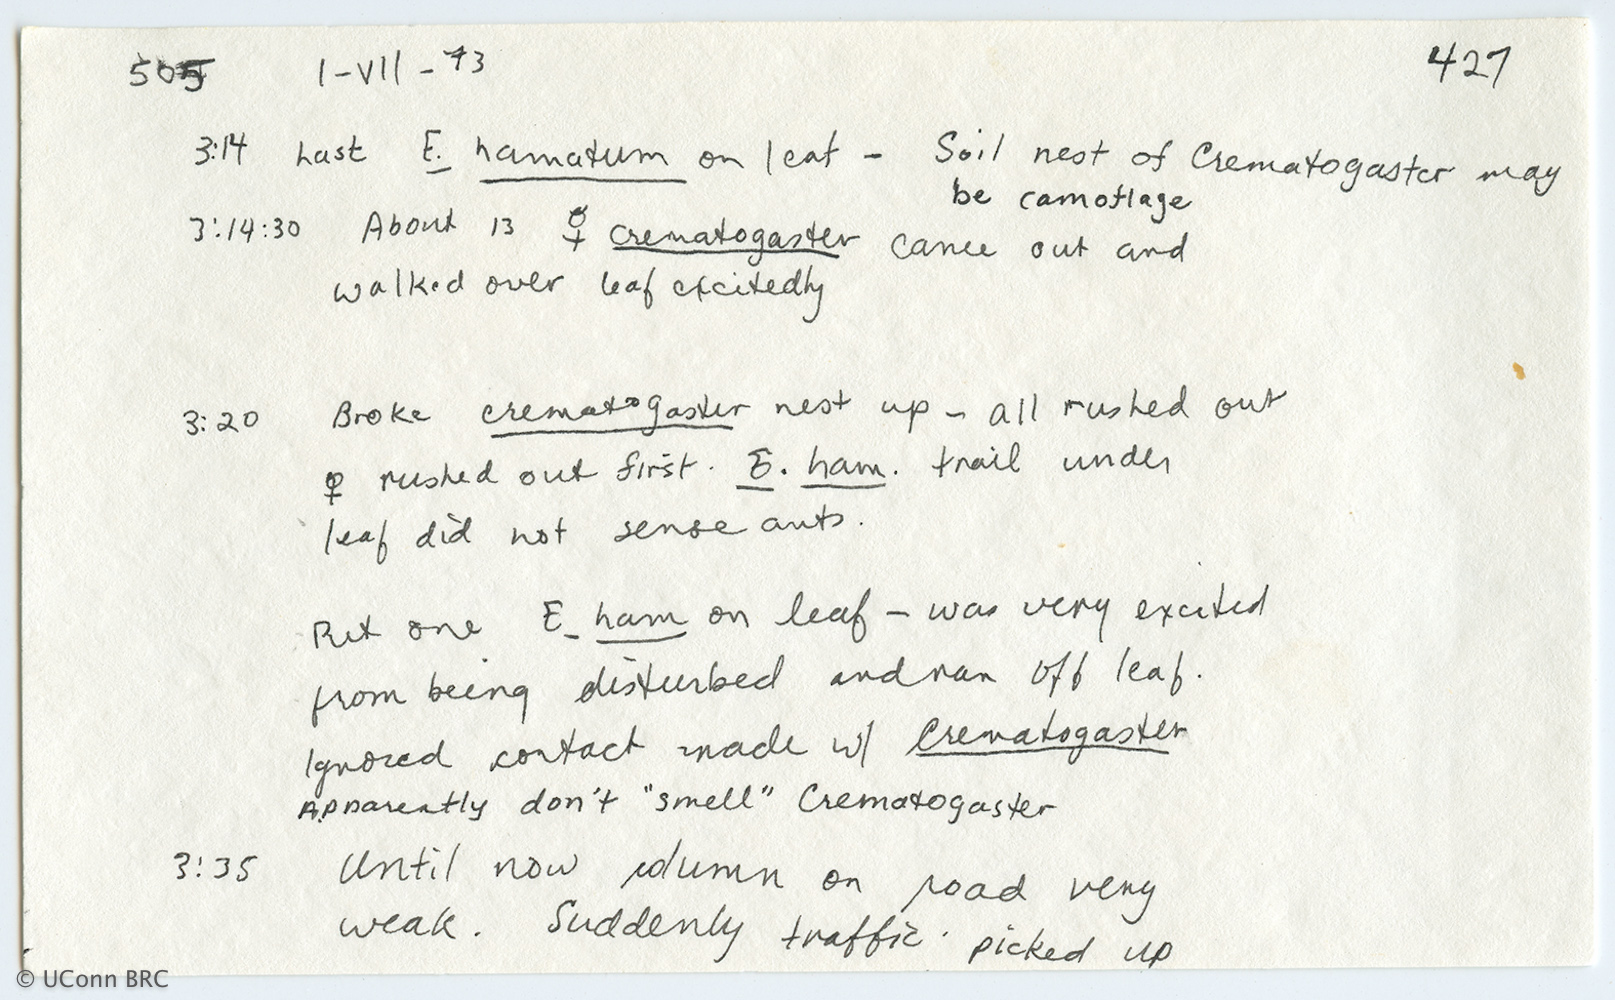 505 1-VII-73 427
3:14 Last E. hamatum on leaf - Soil nest of Crematogaster may
be camoflage
3:14:30 About 13 ☿ crematogaster came out and
walked over leaf excitedly
3:20 Broke crematogaster nest up - all rushed out
♀ rushed out first. E. ham. trail under
leaf did not sense ants.
Put one E ham on leaf - was very excited
from being disturbed and ran off leaf.
Ignored contact made w/ Crematogaster
Apparently don't "smell" Crematogaster
3:35 Until now column on road very
weak. Suddenly traffic picked up
© UConn BRC